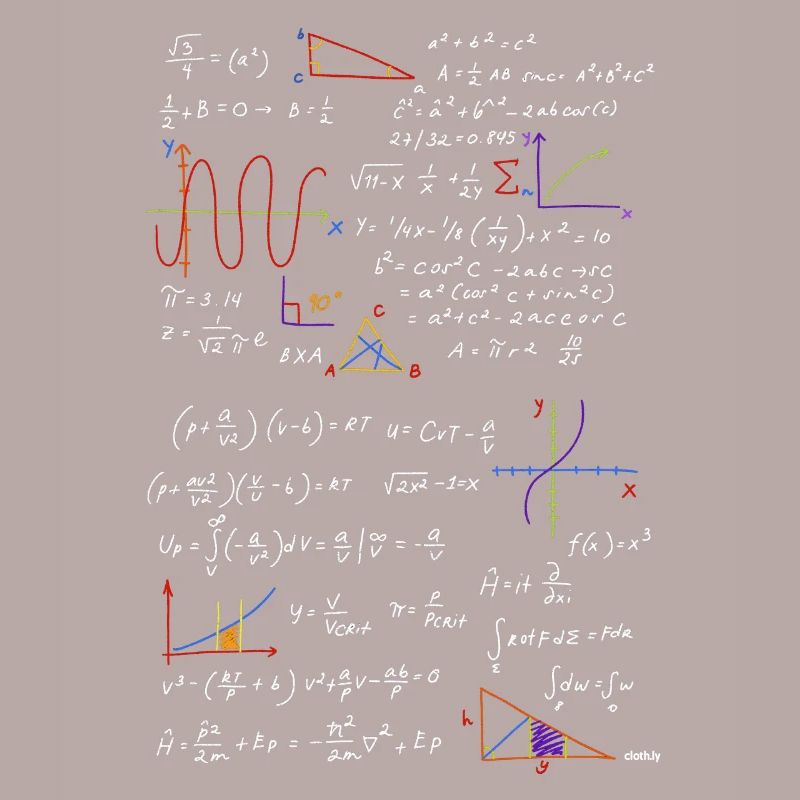 √3/4 = (a²)
b
c
a
a² + b² = c²
A = 1/2 AB sinc = A² + B² + C²
1/2 + B = 0 → B = 1/2
ĉ² = â² + b̂² - 2ab cos(c)
27/32 = 0.845
y
x
√11-x 1/x + 1/2y Σ ~
y
x
Y = 1/4x - 1/8 (1/xy) + x² = 10
b² = cos² C - 2abc → sc
= a² (cos² c + sin² c)
= a² + c² - 2accosc
π = 3.14
90°
z = 1/√2 π e
BXA
C
A
B
A = π r2 10/25
(p + a/v2) (v-b) = RT
u = CvT - a/v
y
x
(p + av2/v2) (v/u - b) = RT
√2x² - 1 = x
Up = ∫ ∞ v (-a/v²) dv = a/v | ∞ v = -a/v
f(x) = x³
Ĥ = it ∂/∂xi
y = V/VCRit
π = P/PCRit
∫ Σ RotFdΣ = Fdr
v³ - (RT/P + b) v² + a/p v - ab/p = 0
∫ 8 dw = ∫ 0 w
h
y
Ĥ = p̂2/2m + Ep = - ℏ²/2m ∇² + Ep
cloth.ly